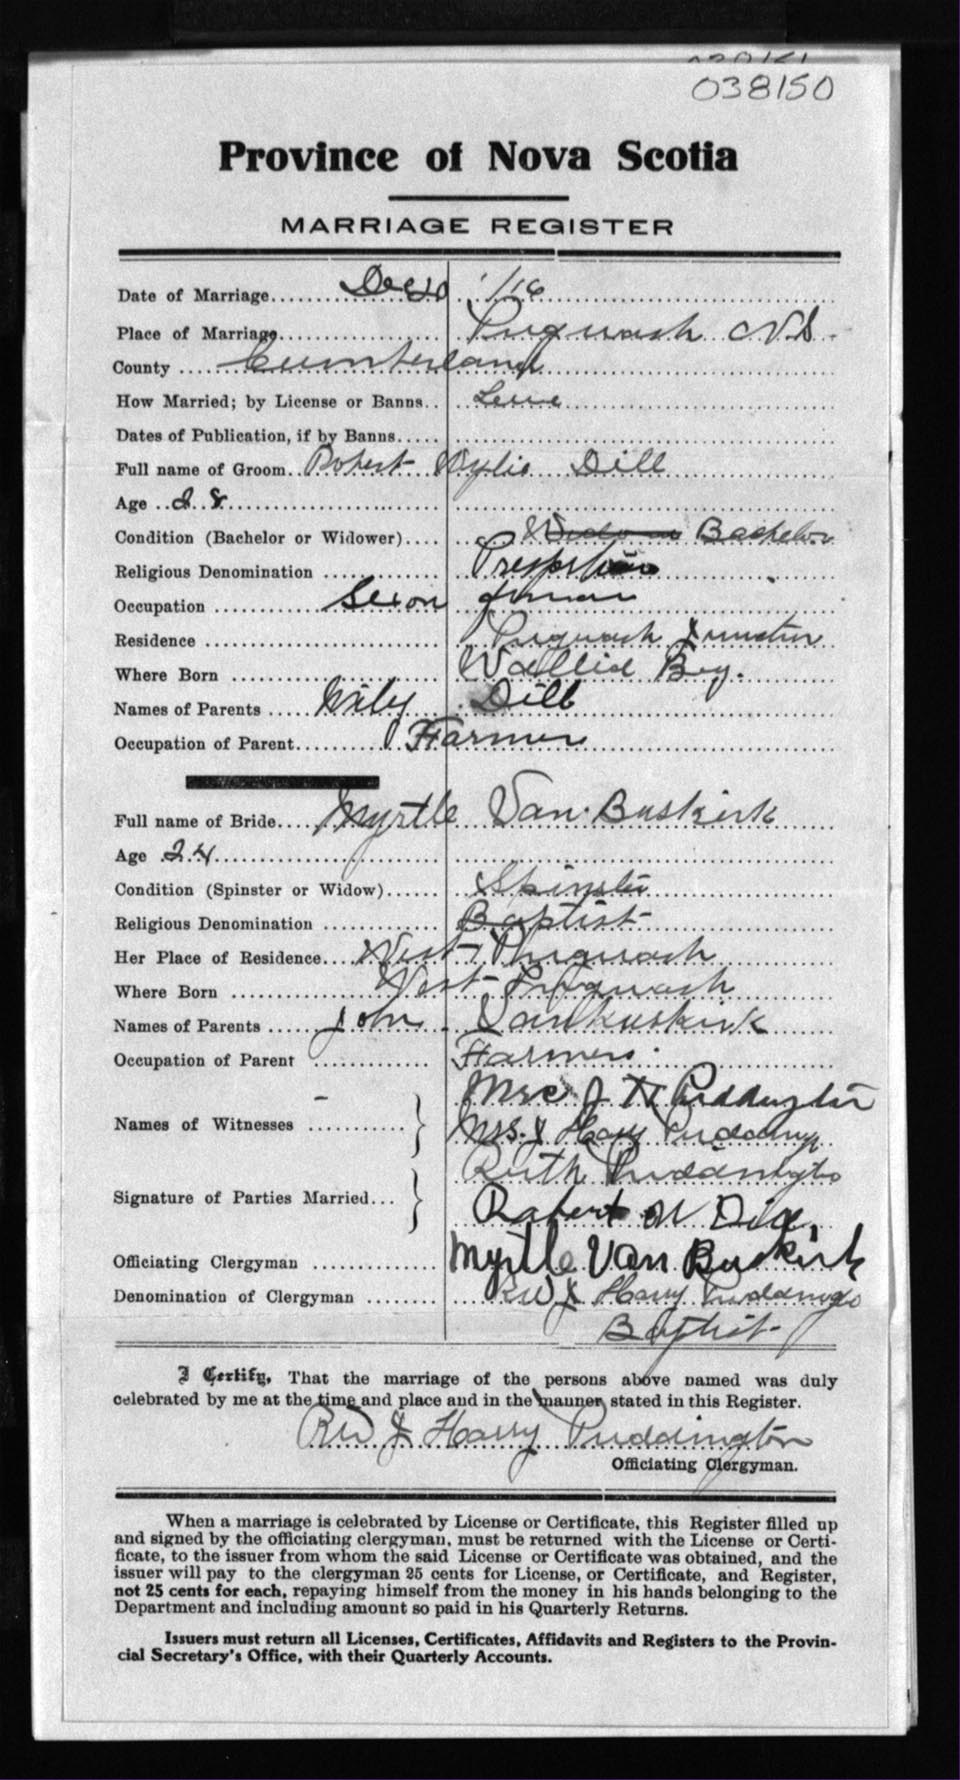 038150
Province of Nova Scotia
MARRIAGE REGISTER
Date of Marriage Dec 20 '/16
Place of Marriage Pugwash N.S.
County Cumberland
How Married; by License or Banns
Dates of Publication, if by Banns
Full name of Groom Robert Wylie Dill
Age 28
Condition (Bachelor or Widower) Bachelor
Religious Denomination
Occupation
Residence Pugwash Junction
Where Born Wallace Bay.
Names of Parents Wily Dill
Occupation of Parent Farmer
Full name of Bride Myrtle Van Buskirk
Age 24
Condition (Spinster or Widow) Spinster
Religious Denomination Baptist
Her Place of Residence West Pugwash
Where Born West Pugwash
Names of Parents John Vanbuskirk
Occupation of Parent Farmer
Names of Witnesses Mrs J H Puddington
Mrs. J Harry
Ruth Puddington
Signature of Parties Married Robert W Dill
Officiating Clergyman Myrtle Van Buskirk
Denomination of Clergyman Rev J Harry Puddington
Baptist
I Certify, That the marriage of the persons above named was duly
celebrated by me at the time and place and in the manner stated in this Register.
Rev J Harry Puddington
Officiating Clergyman.
When a marriage is celebrated by License or Certificate, this Register filled up
and signed by the officiating clergyman, must be returned with the License or Certi-
ficate, to the issuer from whom the said License or Certificate was obtained, and the
issuer will pay to the clergyman 25 cents for License, or Certificate, and Register,
not 25 cents for each, repaying himself from the money in his hands belonging to the
Department and including amount so paid in his Quarterly Returns.
Issuers must return all Licenses, Certificates, Affidavits and Registers to the Provin-
cial Secretary's Office, with their Quarterly Accounts.